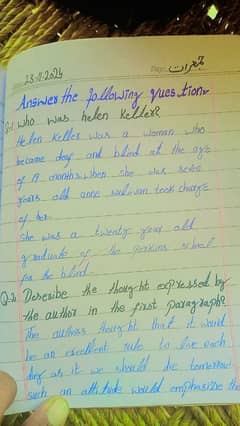 23-9-2024
Page: جمعرات
Answer the following question
Q.1 Who was helen Keller?
Helen Keller was a woman who
became deaf and blind at the age
of 19 months when she was seven
years old anne sulivan took charge
of her.
She was a twenty year old
graduate of the perkins school
for the blind.
Q.2 Describe the thought expressed by
the author in the first paragraph?
The authors thought that it would
be an excellent rule to live each
day as it we should die tomorrow
such an attitude would emphasize the